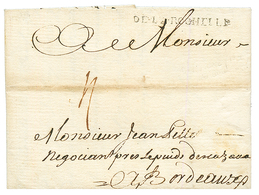 DE LA ROCHELLE
A Monsieur
4
Monsieur Jean Pellet
Negociant pres le puids de
A Bordeaux